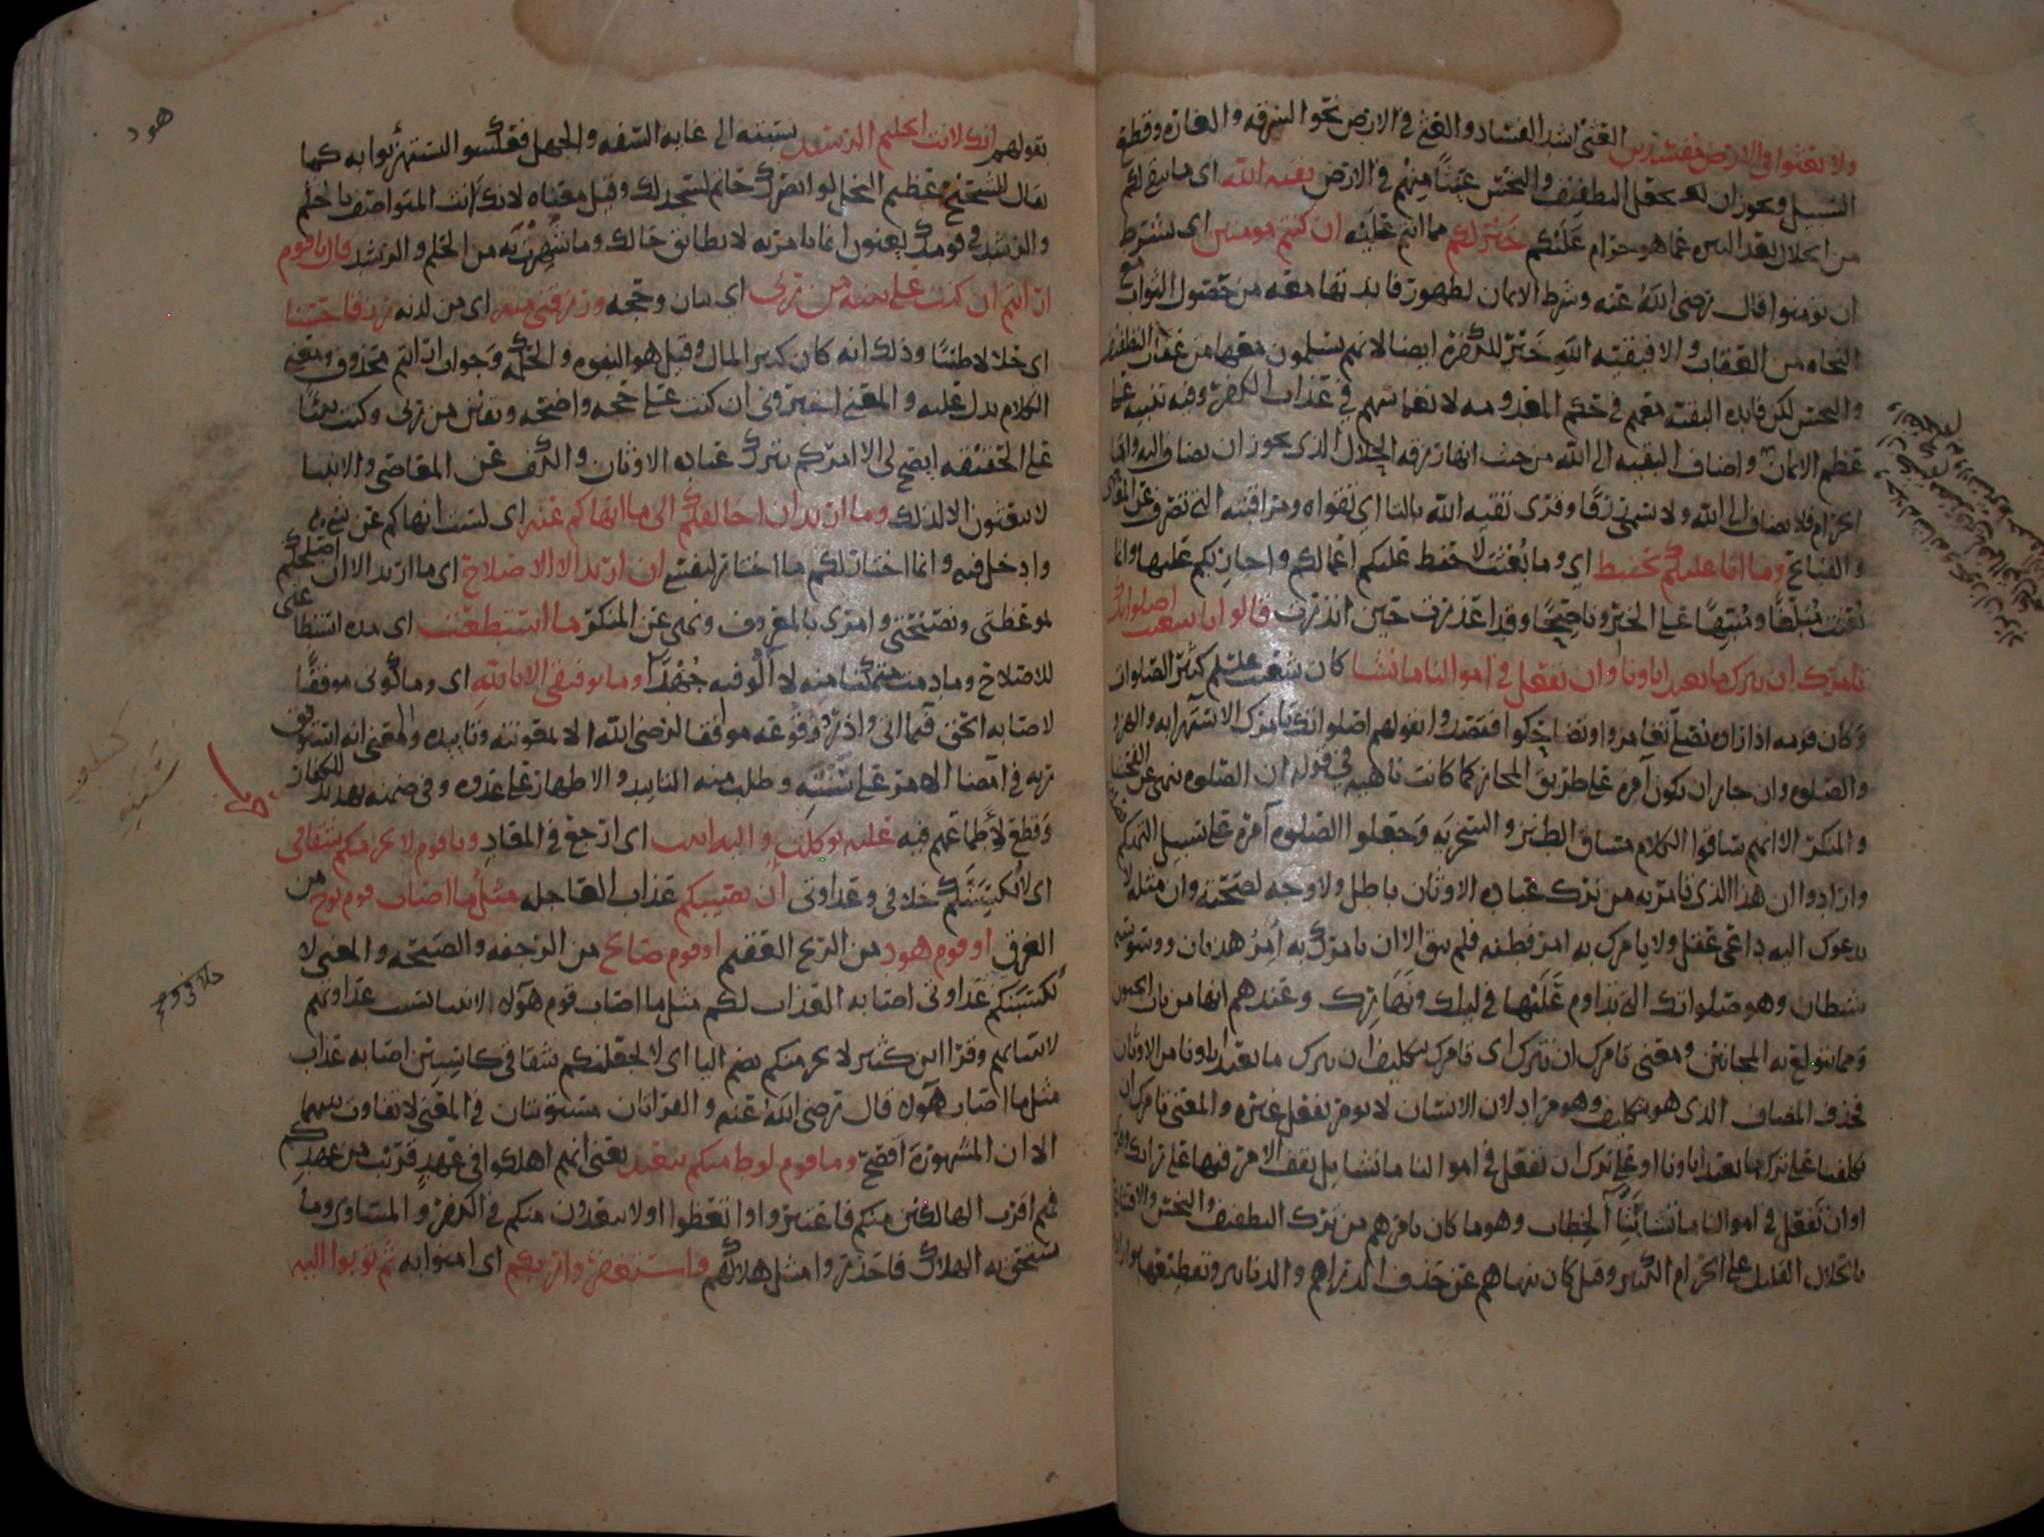 ولا تعثوا في الارض مفسدين العثي اشد الفساد والعثي في الارض نحو السرقه والغاره وقطع
السبيل ويجوز ان يجعل التطفيف والبخس عيثًا منهم في الارض بقيه الله اي ما يبقى لكم
من الحلال بعد التنزه عما هو حرام عليكم خير لكم مما انتم عليه ان كنتم مومنين اي بشرط
ان تومنوا قال رضي الله عنه وشرط الايمان لظهور فايدتها معه من حصول الثواب مع
النجاه من العقاب والا فبقيه الله خير للكفره ايضا لانهم يسلمون معها من عقاب التطفيف
والبخس لكن فايده البقيه معهم في حكم المعدومه لانغماسهم في عذاب الكفر وفيه تنبيه على
عظم الايمان واضاف البقيه الى الله من حيث انها رزقه الحلال الذي يجوز ان يضاف اليه واما
الحرام فلا يضاف الى الله ولا يسمى رزقًا وقرئ تقيه الله بالتا اي تقواه ومراقبته التي تصرف عن المعاصي
والقبايح وما انا عليكم بحفيظ اي وما بعثت لاحفظ عليكم اعمالكم واجازيكم عليها وانما
بعثت مبلغًا ومنبهًا على الخير وناصحًا وقد اعذرت حين انذرت قالوا يا شعيب اصلواتك
تامرك ان نترك ما يعبد اباونا او ان نفعل في اموالنا ما نشا كان شعيب عليه السلم كثير الصلوات
وكان قومه اذا راوه يصلي تغامزوا وتضاحكوا فقصدوا بقولهم اصلواتك تامرك الاستهزا به والهزو
والصلوه وان جاز ان تكون آمره على طريق المجاز كما كانت ناهيه في قوله ان الصلوه تنهى عن الفحشا
والمنكر الا انهم ساقوا الكلام مساق الطنز والسخريه وجعلوا الصلوه آمره على سبيل التهكم
وارادوا ان هذا الذي تامر به من ترك عباده الاوثان باطل ولا وجه لصحته وان مثله لا
يدعوك اليه داعي عقل ولا يامرك به امر فطنه فلم يبق الا ان يامرك به آمر هذيان ووسوسه
شيطان وهو صلواتك التي تداوم عليها في ليلك ونهارك وعندهم انها من باب الجنون
ومما يتولع به المجانين ومعنى تامرك ان نترك اي تامرك بتكليف ان نترك ما يعبد اباونا من الاوثان
فحذف المضاف الذي هو بتكليف وهو مراد لان الانسان لا يومر بفعل غيره والمعنى تامرك ان
تكلفنا على ترك ما يعبد اباونا او على ترك ان نفعل في اموالنا ما نشا
او ان تفعل في اموالنا ما تشا بتا الخطاب وهو ما كان يامرهم من ترك التطفيف والبخس والاقتناع
بالحلال القليل على الحرام الكثير وقيل كان ينهاهم عن حذف الدراهم والدنانير وتقطيعها
هود
بقولهم انك لانت الحليم الرشيد نسبته الى غايه السفه والجهل فعكسوا ليستهزئوا به كما
يقال للشحيح عظيم البخل لو ابصرك حاتم لسجد لك وقيل معناه لانك انت المتواصف بالحلم
والرشد في قومك يعنون انما تامر به لا يطابق حالك وما شهرت به من الحلم والرشد قال يا قوم
ارايتم ان كنت على بينه من ربي اي بيان وحجه ورزقني منه اي من لدنه رزقا حسنا
اي حلالا طيبًا وذلك انه كان كثير المال وقيل هو النبوه والحكمه وجواب ارايتم محذوف ومعنى
الكلام يدل عليه والمعنى اخبروني ان كنت على حجه واضحه ويقين من ربي وكنت نبيًا
على الحقيقه ايصح لي الا امركم بترك عباده الاوثان والكف عن المعاصي والانبيا
لا يبعثون الا لذلك وما اريد ان اخالفكم الى ما انهاكم عنه اي لست انهاكم عن شي
وادخل فيه وانما اختار لكم ما اختار لنفسي ان اريد الا الاصلاح اي ما اريد الا ان اصلحكم
بموعظتي ونصيحتي وامري بالمعروف ونهيي عن المنكر ما استطعت اي مده استطاعتي
للاصلاح وما دمت متمكنا منه لا آلو فيه جهدًا وما توفيقي الا بالله اي وما كوني موفقًا
لاصابه الحق فيما اتي واذر ووقوعه موافقا لرضى الله الا بمعونته وتاييده والمعنى انه استوفق
ربه في امضا الامر على سننه وطلب منه التاييد والاظهار على عدوه وفي ضمنه تهديد للكفار
وقطع لاطماعهم فيه عليه توكلت واليه انيب اي ارجع في المعاد ويا قوم لا يجرمنكم شقاقي
اي لا يكسبنكم خلافي وعداوتي ان يصيبكم عذاب العاجله مثل ما اصاب قوم نوح من
الغرق او قوم هود من الريح العقيم او قوم صالح من الرجفه والصيحه والمعنى لا
تكسبنكم عداوتي اصابه العذاب لكم مثل ما اصاب قوم هؤلا الانبيا بسبب عداوتهم
لانبيايهم وقرا ابن كثير لا يجرمنكم بضم اليا اي لا يجعلنكم شقاقي كاسبين اصابه عذاب
مثل ما اصاب هؤلا قال رضي الله عنه والقراتان مستويتان في المعنى لا تفاوت بينهما
الا ان المشهوره افصح وما قوم لوط منكم ببعيد يعني انهم اهلكوا في عهد قريب من عهدكم
فهم اقرب الهالكين منكم فاعتبروا واتعظوا او لا يبعدون منكم في الكفر والمساوي وما
يستحق به الهلاك فاحذروا مثل هلاكهم واستغفروا ربكم اي امنوا به ثم توبوا اليه